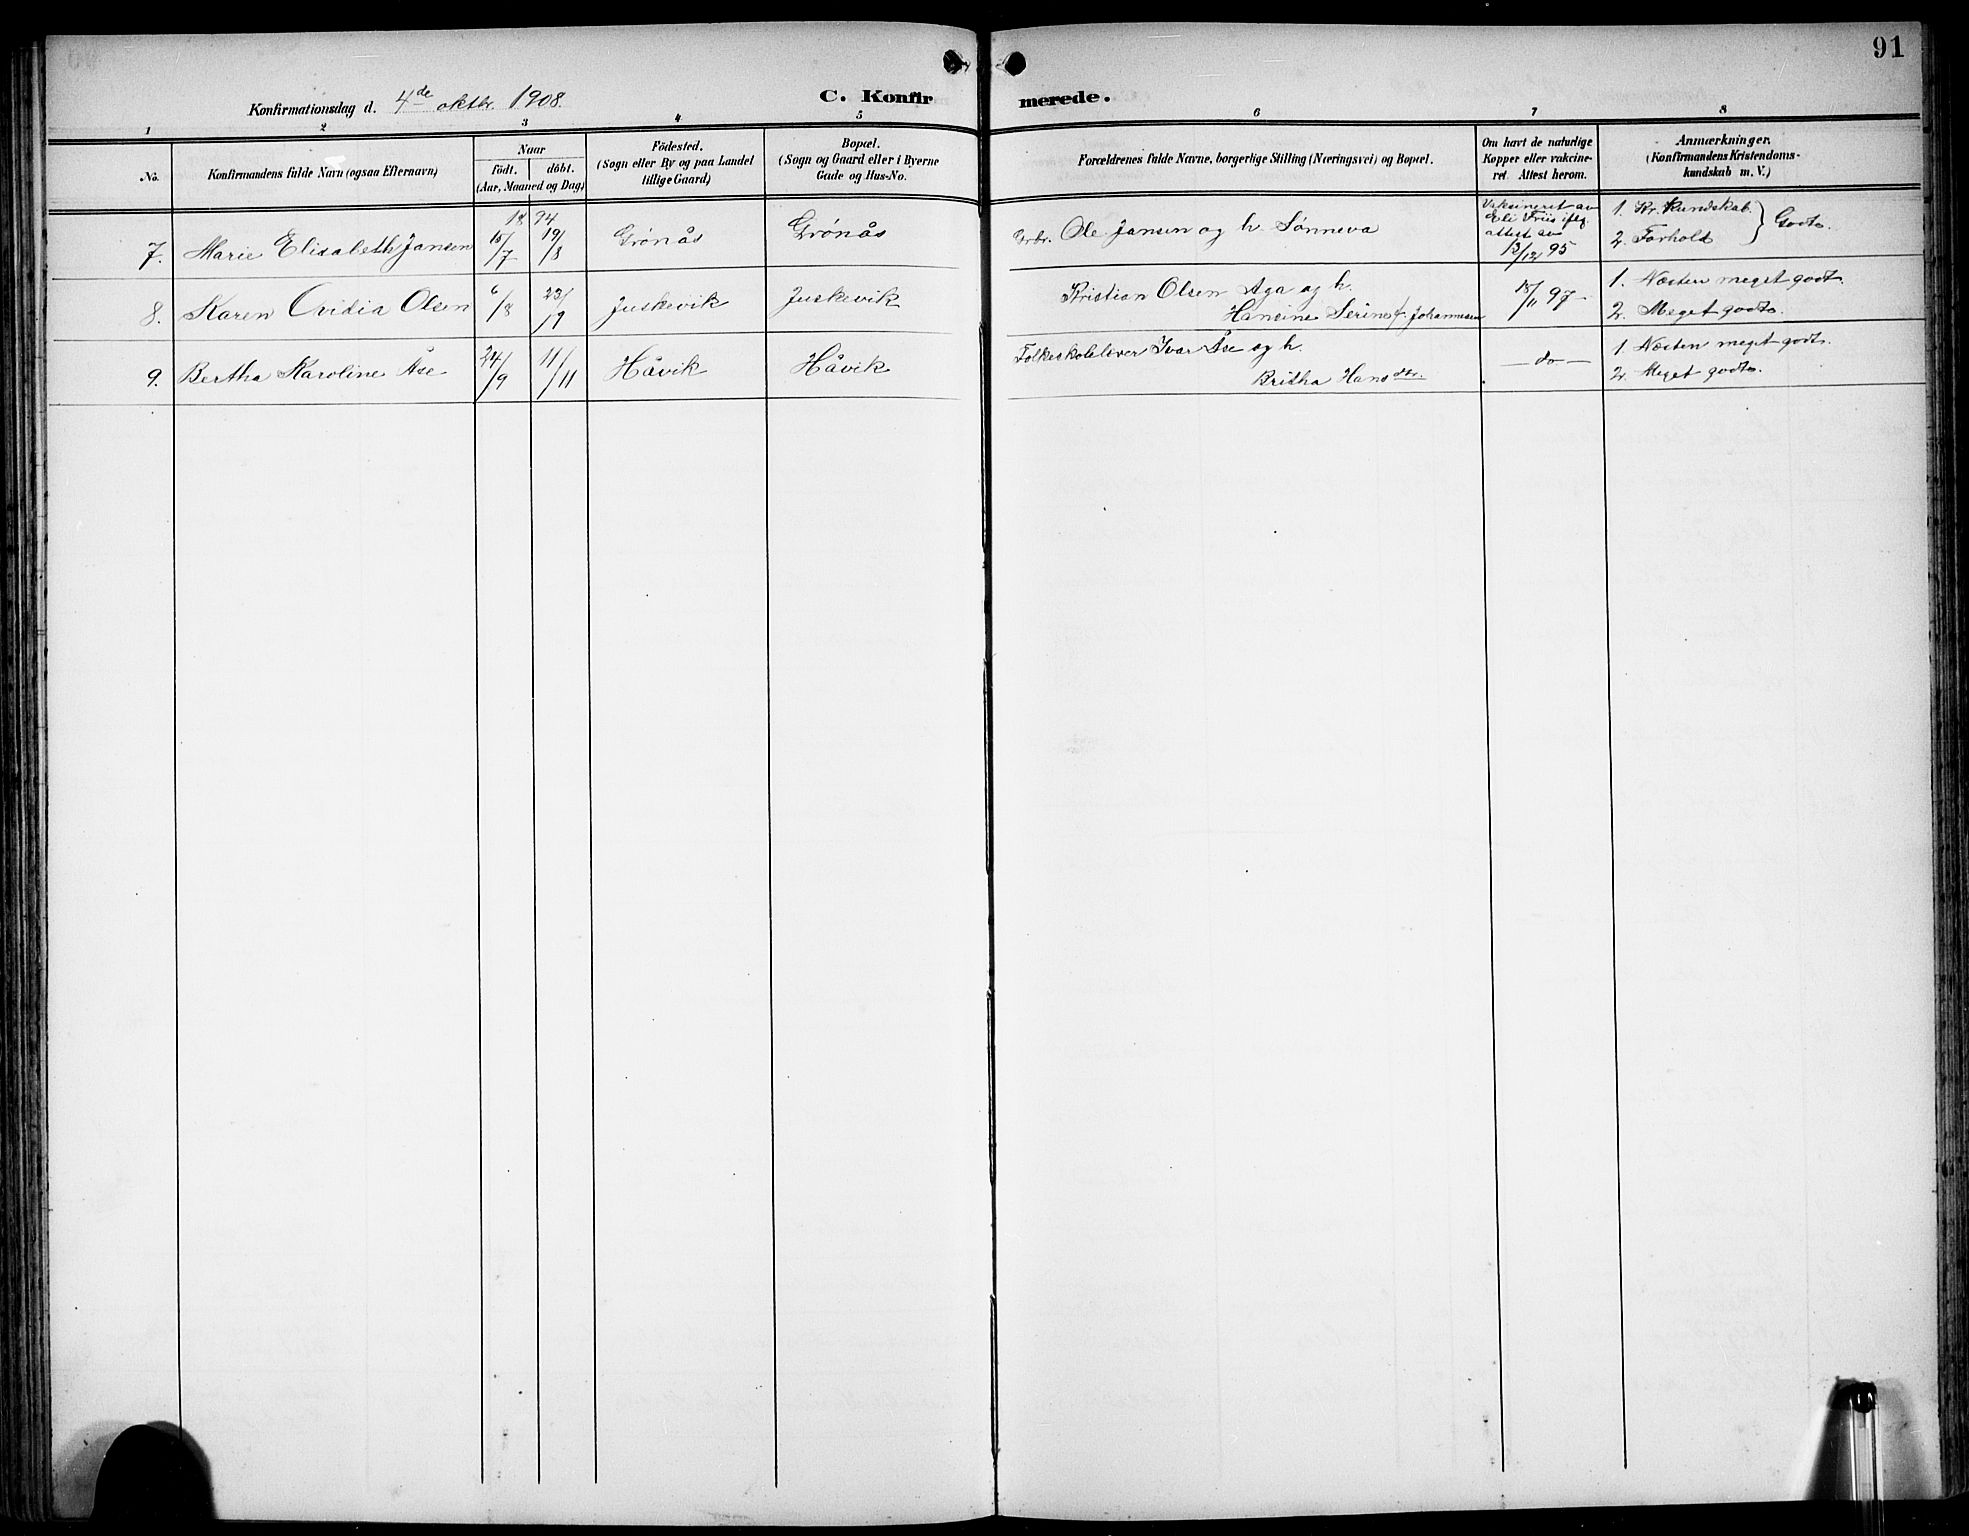 91
Konfirmationsdag d. 4de oktbr. 1908.
C. Konfirmerede.
1 2 3 4 5 6 7 8
No.
Konfirmandens fulde Navn (ogsaa Efternavn)
Naar
födt. döbt.
(Aar, Maaned og Dag)
Födested.
(Sogn eller By og paa Landet
tillige Gaard)
Bopæl.
(Sogn og Gaard eller i Byerne
Gade og Hus-No.
Forældrenes fulde Navne, borgerlige Stilling (Næringsvei) og Bopæl.
Om havt de naturlige
Kopper eller vakcine-
ret. Attest herom.
Anmærkninger.
(Konfirmandens Kristendoms-
kundskab m. V.)
18 94
7. Marie Elisabeth Jansen 15/7 19/8 Grønås Grønås Grbr. Ole Jansen og h. Sønneva
Vaksineret av
Eli Friis iflg
attest av
13/12 95
1. Kr. Kundskab.
2. Forhold } Godt.
8. Karen Ovidia Olsen 6/8 23/9 Juskevik Juskevik Kristian Olsen Aga og h.
Hansine Serine f. Johannesen
15/11 97
1. Næsten meget godt.
2. Meget godt.
9. Bertha Karoline Åse 24/9 11/11 Håvik Håvik Folkeskolelærer Ivar Åse og h.
Britha Hansdtr.
— do —
1. Næsten meget godt.
2. Meget godt.